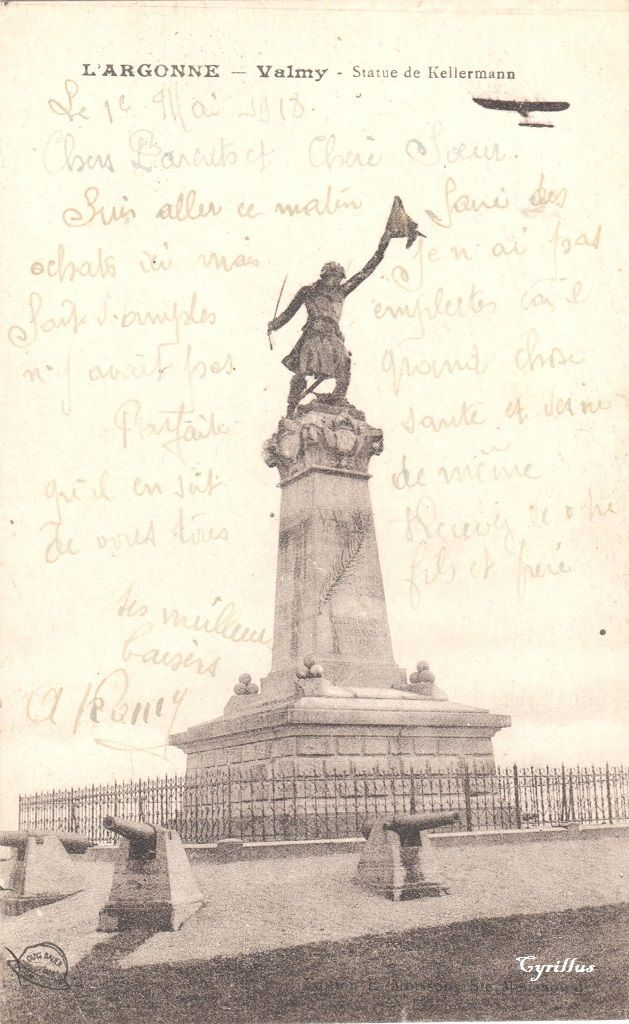 L'ARGONNE — Valmy - Statue de Kellermann
Le 1e Mai 1918.
Chers Parents et Chere Sœur.
Suis aller ce matin faire des
achats ici mais Je n'ai pas
fait d'amples emplettes car il
n'y avait pas grand chose
Parfaite santé et desire
qu'il en soit de même
de vous tous Recevez de votre
fils et frère
ses meilleurs
baisers
KELLERMANN
Cyrillus